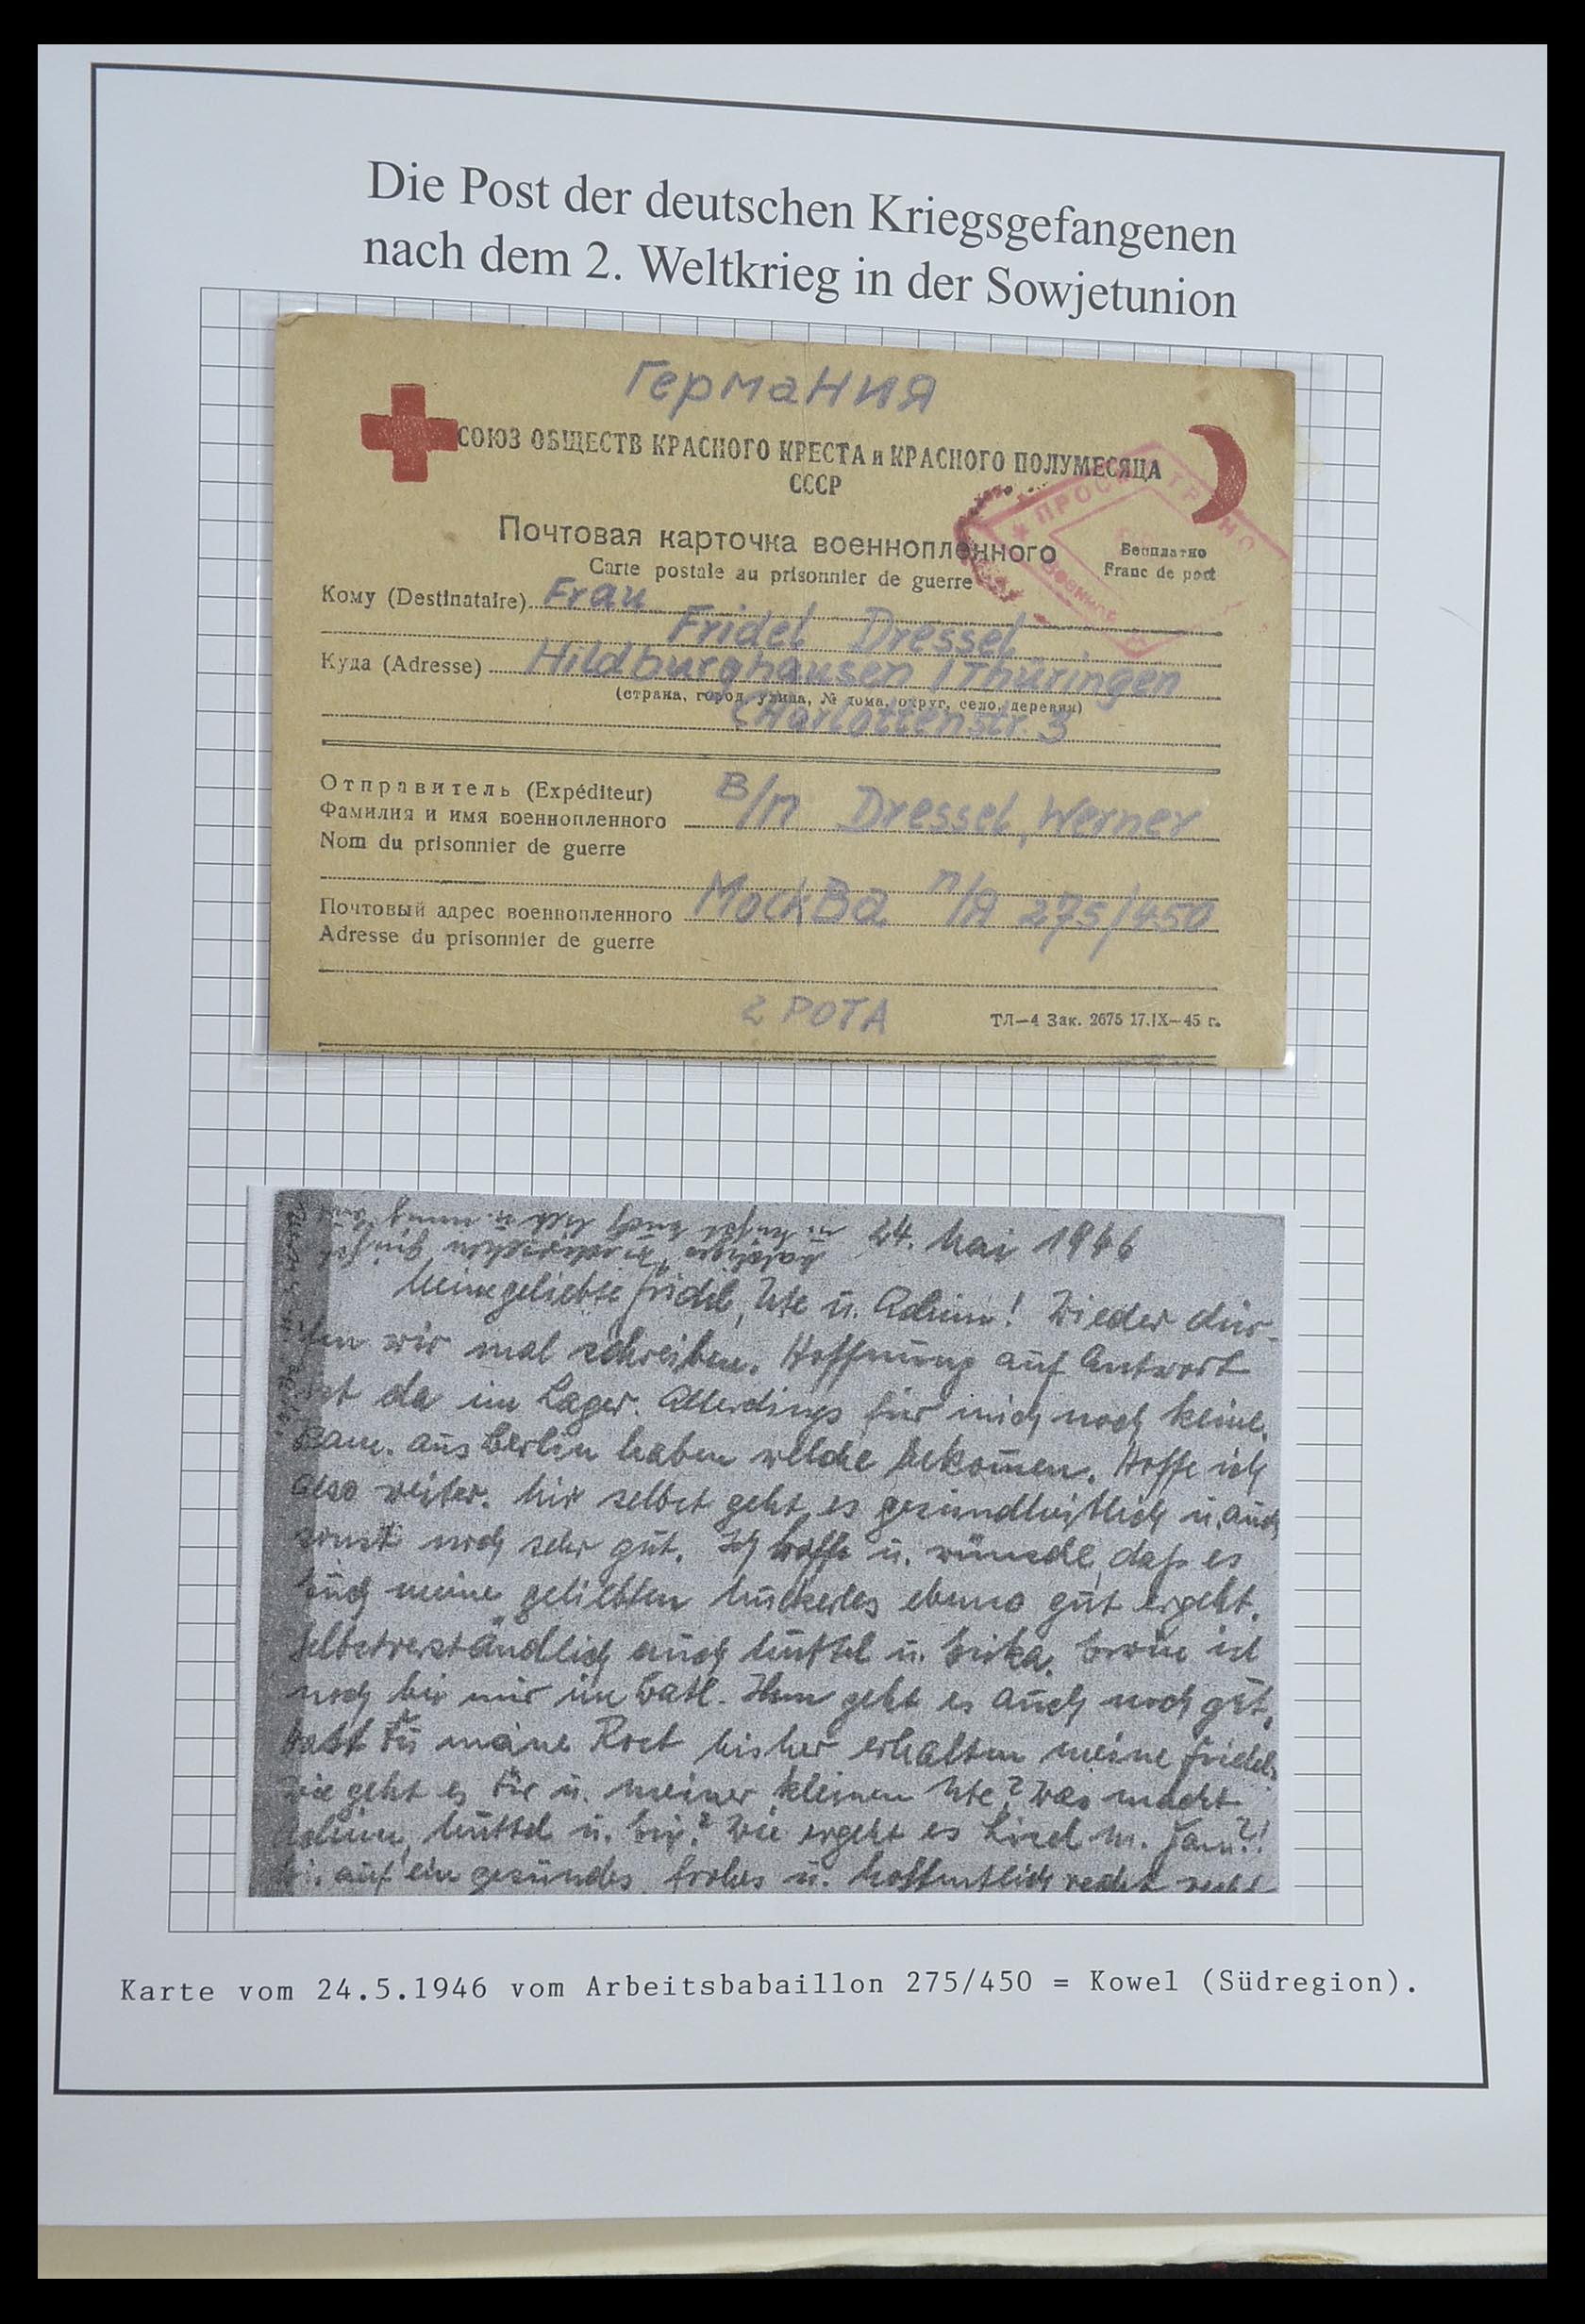 Die Post der deutschen Kriegsgefangenen
nach dem 2. Weltkrieg in der Sowjetunion
Германия
СОЮЗ ОБЩЕСТВ КРАСНОГО КРЕСТА и КРАСНОГО ПОЛУМЕСЯЦА
СССР
Почтовая карточка военнопленного
Carte postale au prisonnier de guerre
Бесплатно
Franc de port
Кому (Destinataire) Frau
Fridel Dressel
Куда (Adresse) Hildburghausen / Thüringen
(страна, город, улица, № дома, округ, село, деревня)
Charlottenstr. 3
Отправитель (Expéditeur)
Фамилия и имя военнопленного В/П Dressel, Werner
Nom du prisonnier de guerre
Почтовый адрес военнопленного МоскВа п/Я 275/450
Adresse du prisonnier de guerre
2 РОТА
ТЛ—4 Зак. 2675 17.IX—45 г.
24. Mai 1946
Meine geliebte Fridel, Ute u. Achim! Wieder dür-
fen wir mal schreiben. Hoffnung auf Antwort
ist da im Lager. Allerdings für mich noch keine.
Kam. aus Berlin haben welche bekommen. Hoffe ich
also weiter. Mir selbst geht es gesundheitlich u. auch
sonst noch sehr gut. Ich hoffe u. wünsche, daß es
Euch meine geliebten ebenso gut ergeht.
Selbstverständlich auch Muttel u. Erika. Erwin ist
noch bei mir im Batl. Ihm geht es auch noch gut.
Hast Du meine Post bisher erhalten meine Fridel.
Wie geht es Dir u. meiner kleinen Ute? Was macht
Achim, Muttel u. Eri.? Wie ergeht es Liesel m. Fam.?!
auf ein gesundes, frohes u. hoffentlich recht recht
Karte vom 24.5.1946 vom Arbeitsbabaillon 275/450 = Kowel (Südregion).